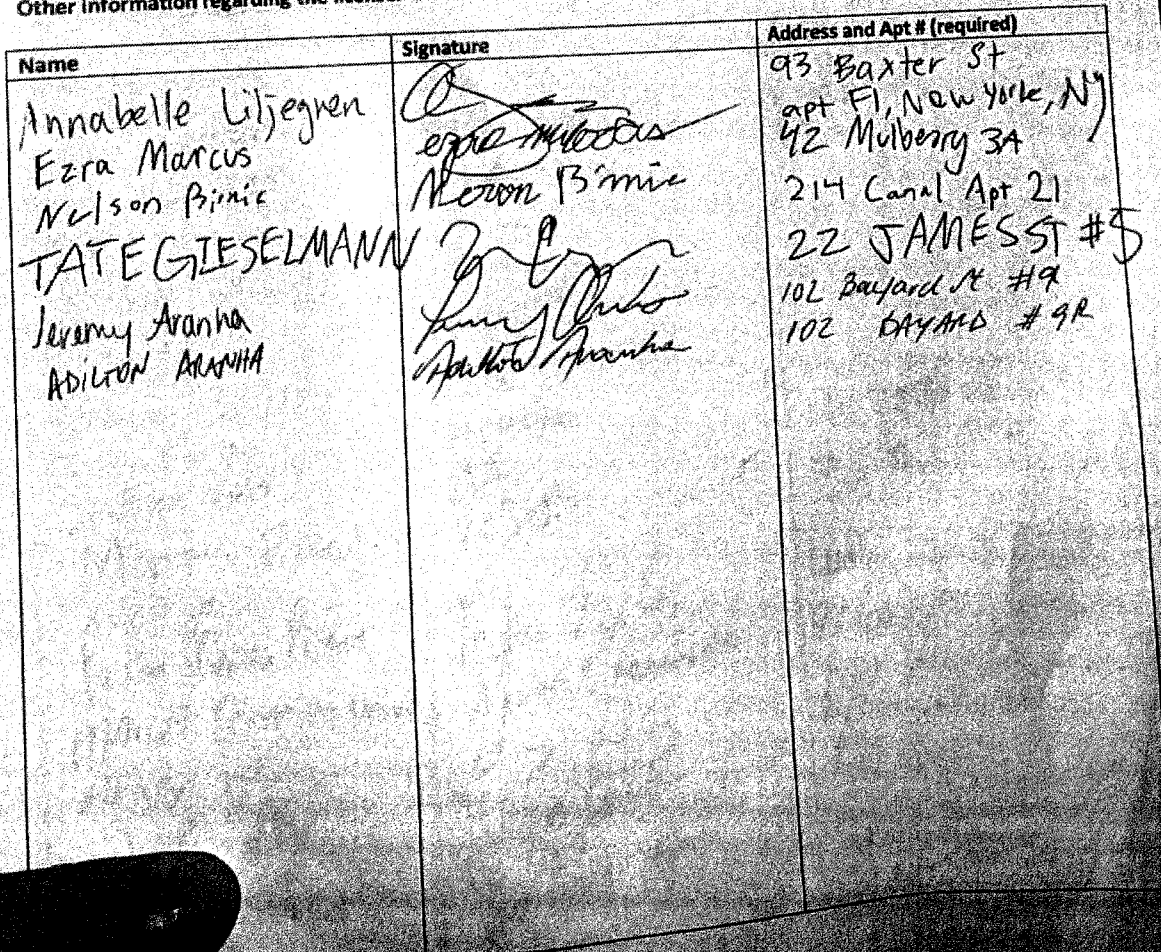 Other information regarding the
Name Signature Address and Apt # (required)
Annabelle Liljegren 93 Baxter St
apt F1, New York, NY
Ezra Marcus 42 Mulberry 3A
Nelson Birnie 214 Canal Apt 21
TATE GIESELMANN 22 JAMES ST #5
Jeremy Aranha Jeremy 102 Bayard St.
ADILTON ARANHA Adilton Aranha 102 BAYARD # 9R